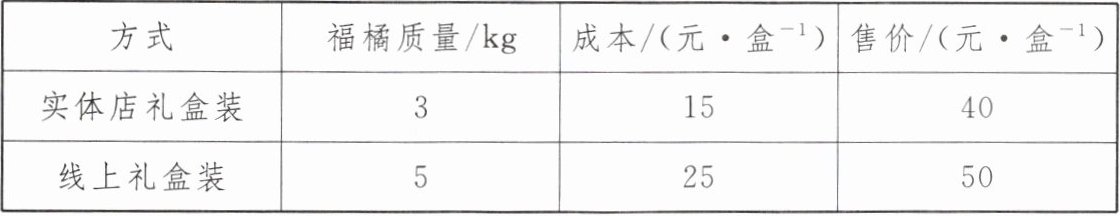 方式 福橘质量/kg 成本/(元·盒⁻¹) 售价/(元·盒⁻¹)
实体店礼盒装 3 15 40
线上礼盒装 5 25 50